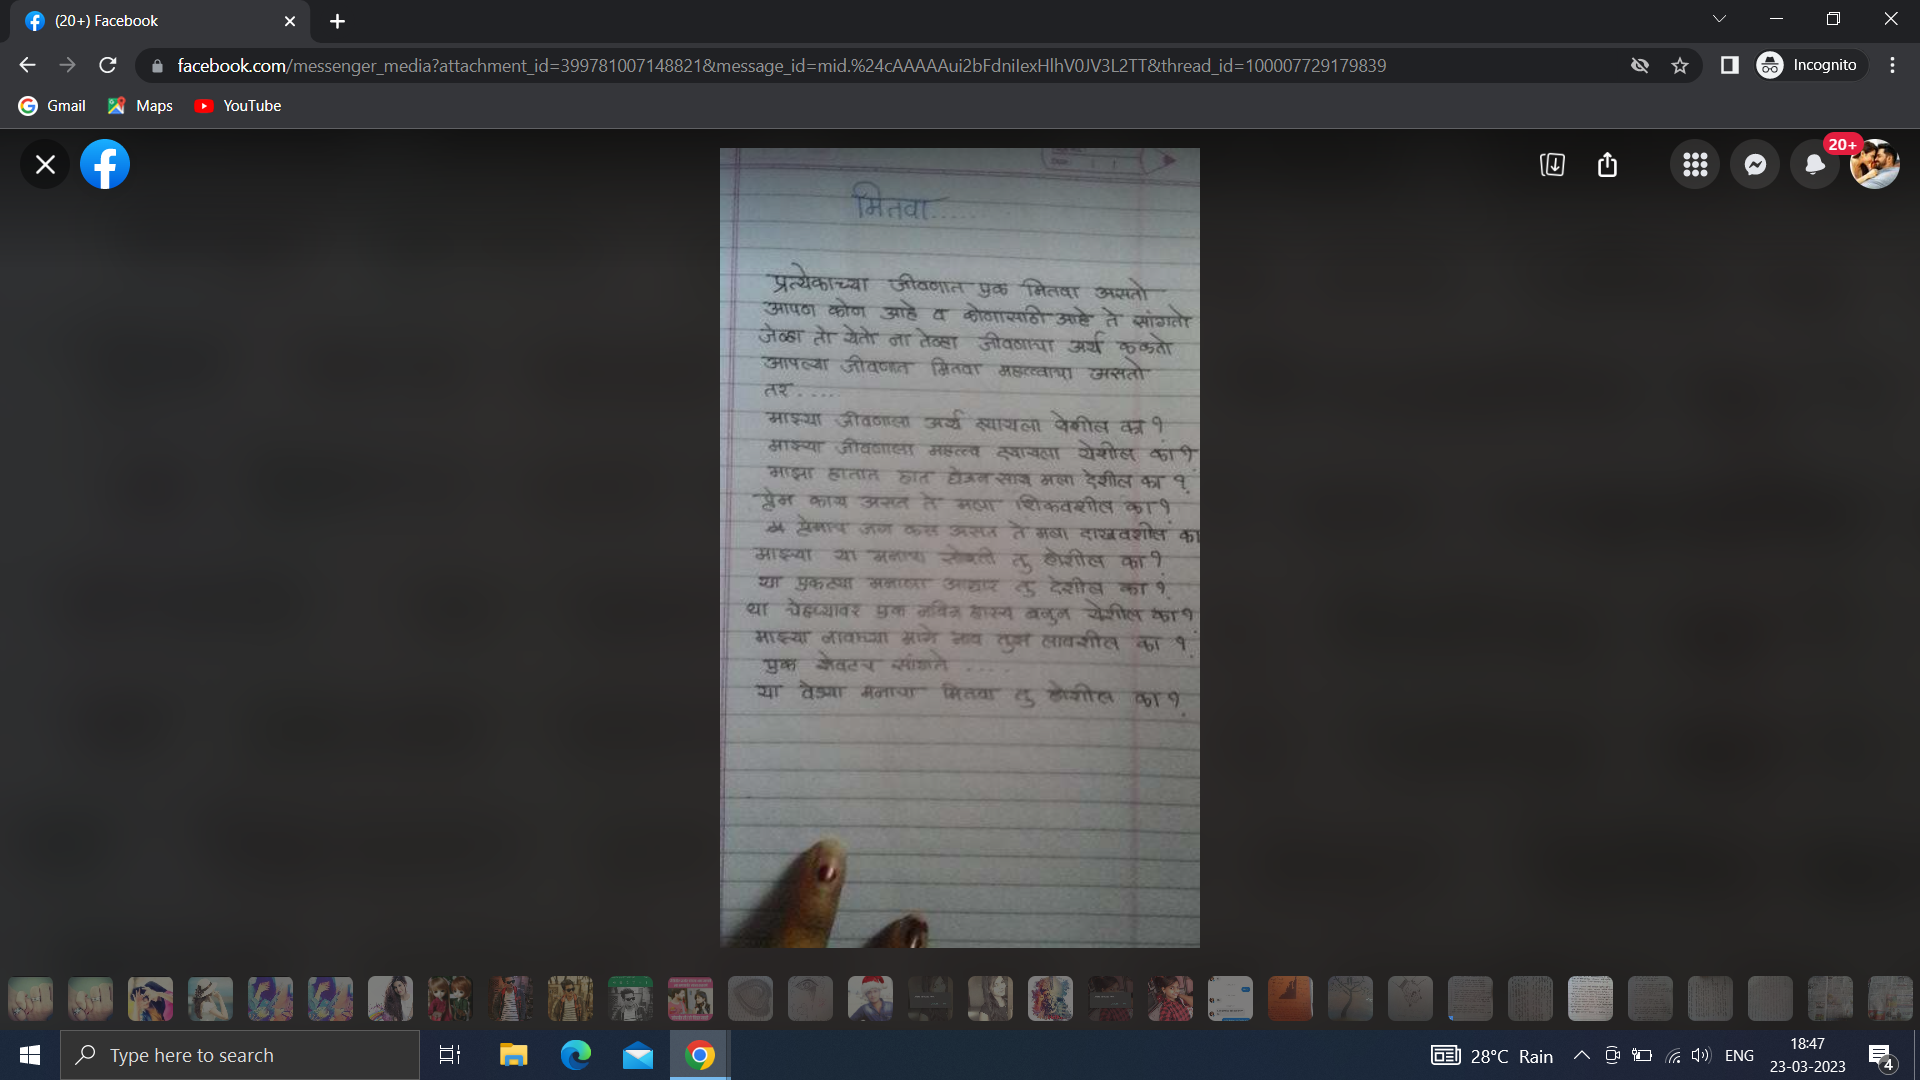 (20+) Facebook
facebook.com/messenger_media?attachment_id=399781007148821&message_id=mid.%24cAAAAAui2bFdniIexHlhV0JV3L2TT&thread_id=100007729179839
Incognito
Gmail
Maps
YouTube
20+
मितवा......
प्रत्येकाच्या जीवणात एक मितवा असतो
आपण कोण आहे व कोणासाठी आहे ते सांगतो
जेव्हा तो येतो ना तेव्हा जीवणाचा अर्थ कळतो
आपल्या जीवणात मितवा महत्त्वाचा असतो
तर.....
माझ्या जीवणाला अर्थ द्यायला येशील का?
माझ्या जीवणाला महत्त्व द्यायला येशील का?
माझा हातात हात घेऊन साथ मला देशील का?
प्रेम काय असत ते मला शिकवशील का?
प्रेमाच जग कस असत ते मला दाखवशील का
माझ्या या मनाचा सोबती तु होशील का?
या एकट्या मनाला आधार तु देशील का?
या चेहऱ्यावर एक नविन हास्य बनुन येशील का?
माझ्या नावाच्या मागे नाव तुझ लावशील का?
एक शेवटच सांगते ....
या वेड्या मनाचा मितवा तु होशील का?
Type here to search
28°C Rain
ENG
18:47
23-03-2023
4